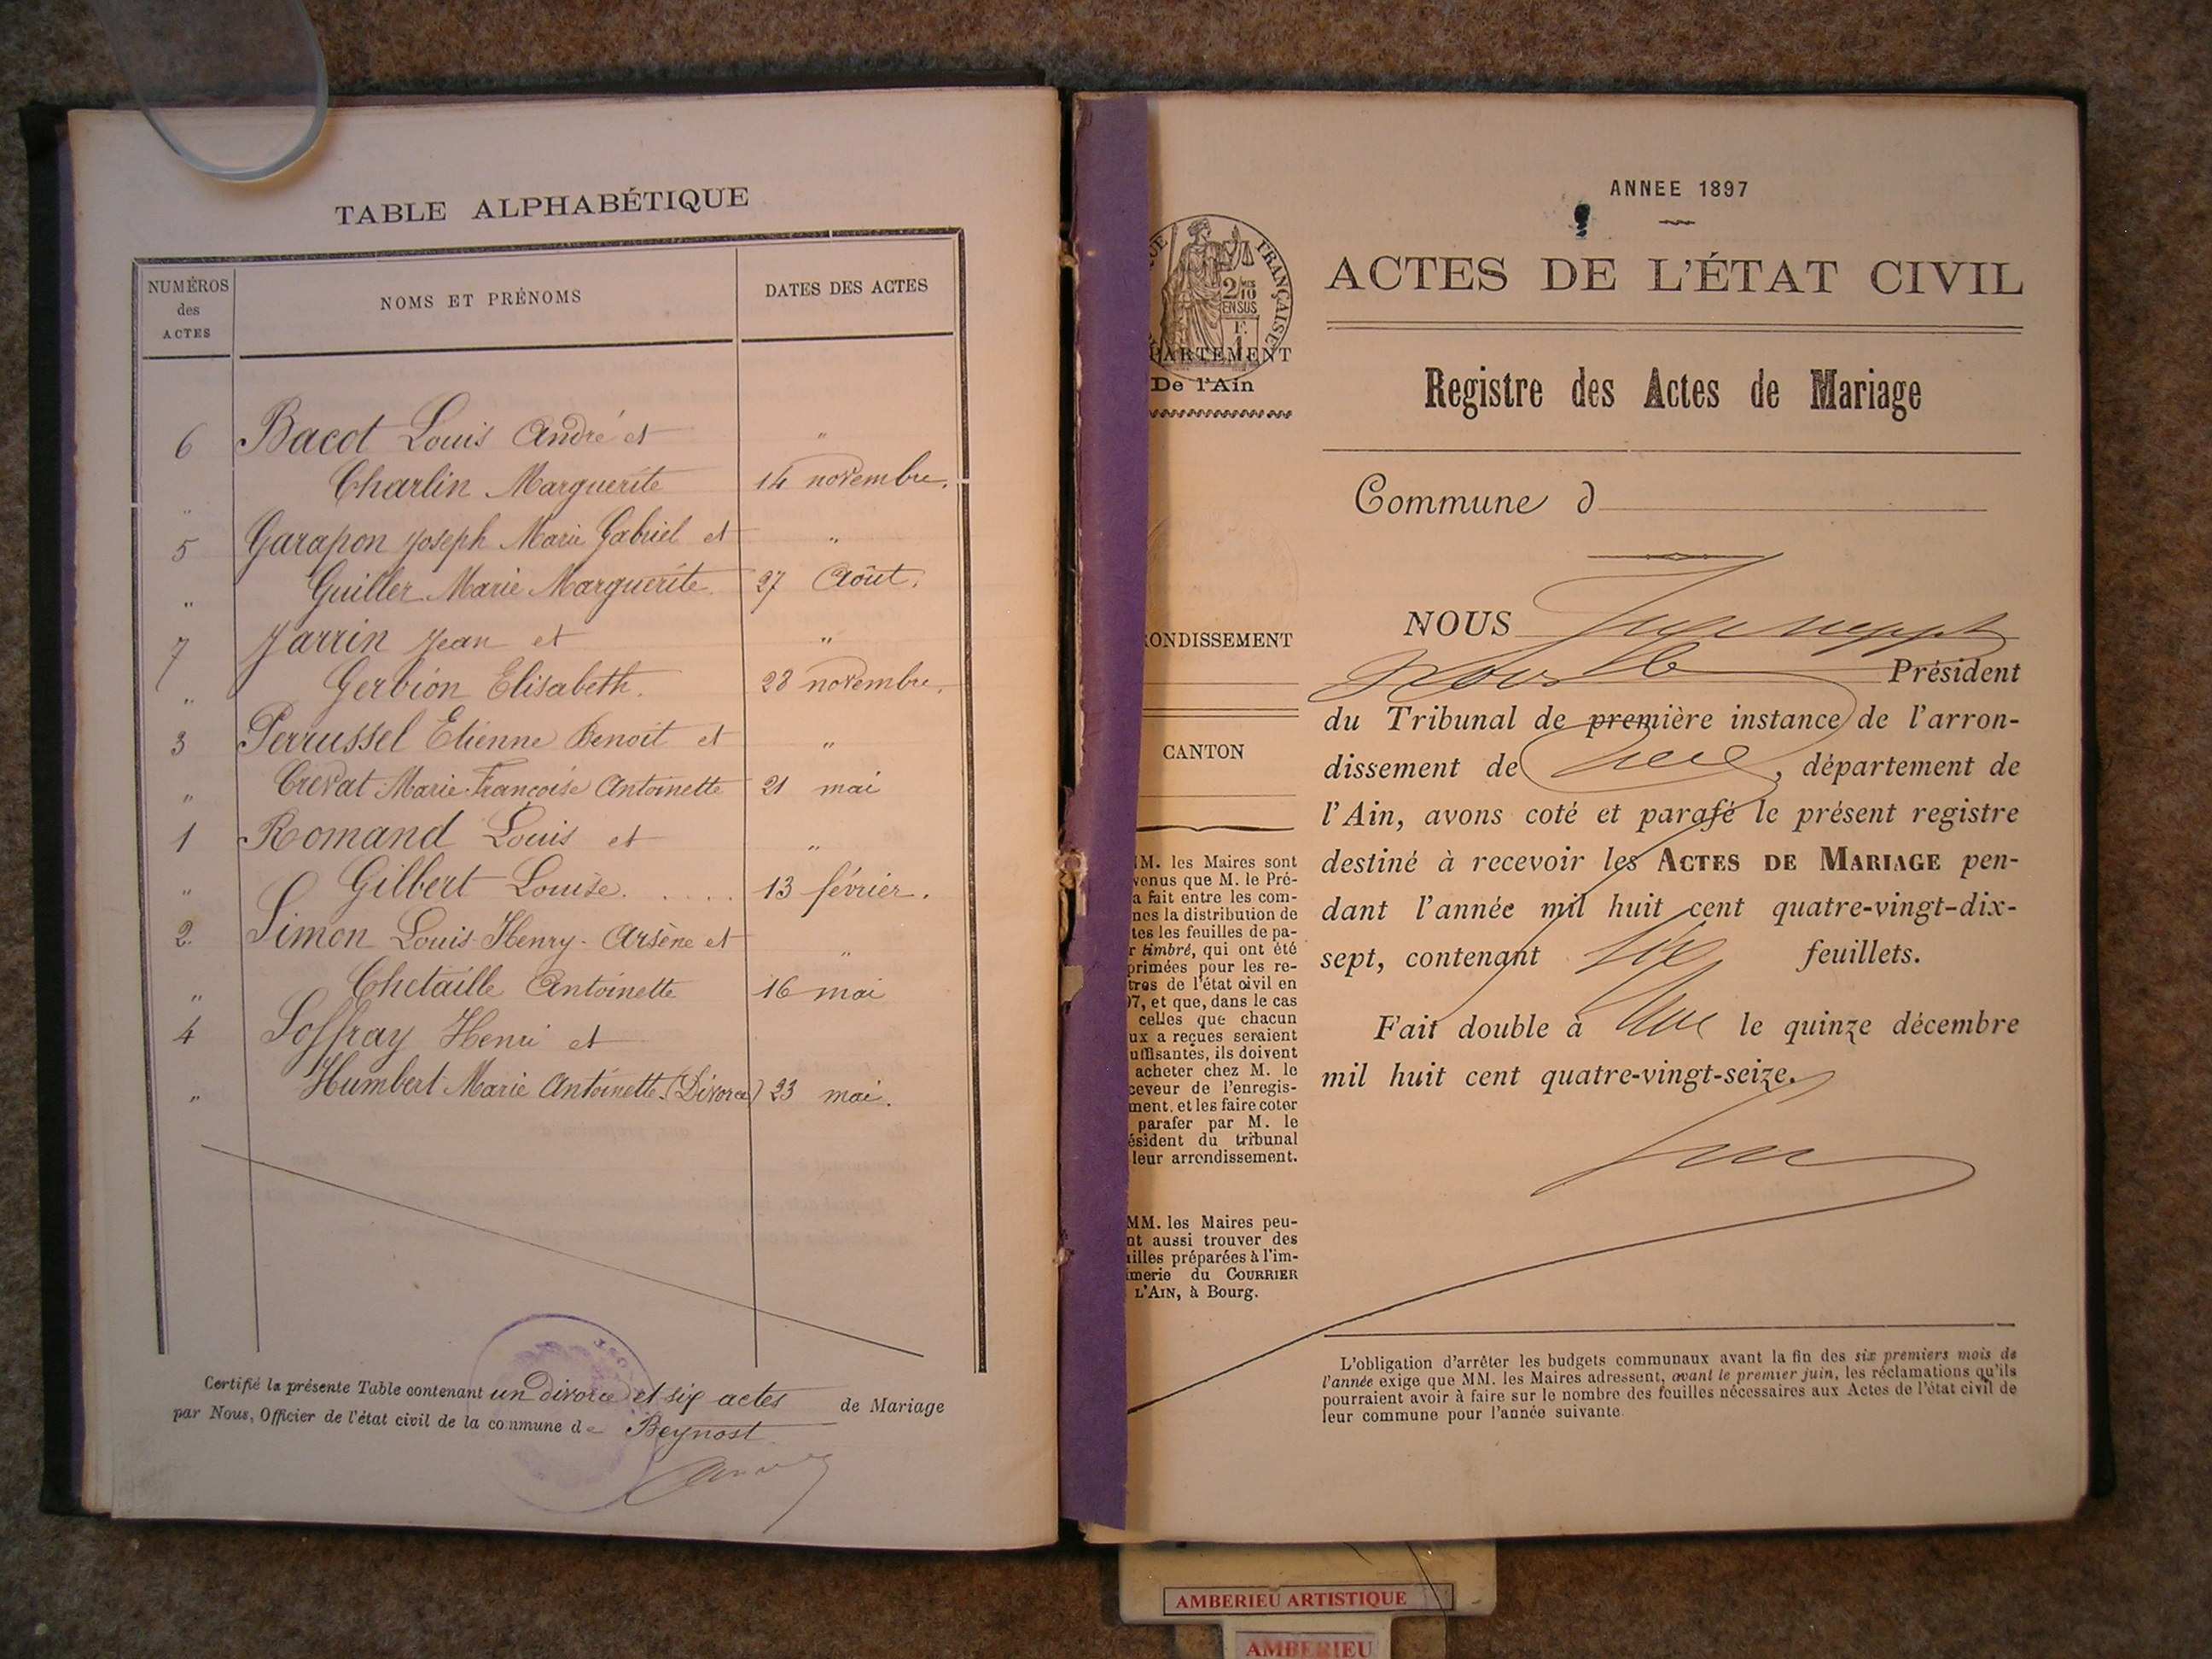 TABLE ALPHABÉTIQUE
NUMÉROS
des
ACTES
NOMS ET PRÉNOMS
DATES DES ACTES
6 Bacot Louis André et "
" Charlin Marguerite 14 novembre.
5 Garapon Joseph Marie Gabriel et "
" Guiller Marie Marguerite. 27 Août.
7 Jarrin Jean et "
" Gerbion Elisabeth. 28 novembre.
3 Perrussel Etienne Benoit et "
" Crevat Marie Françoise Antoinette 21 mai
1 Romand Louis et "
" Gilbert Louise. . . . . 13 février.
2. Simon Louis-Henry-Arsène et "
" Chetaille Antoinette 16 mai
4 Soffray Henri et
" Humbert Marie Antoinette. (Divorce) 23 mai.
Certifié la présente Table contenant un divorce et six actes de Mariage
par Nous, Officier de l'état civil de la commune de Beynost.
ANNEE 1897
ACTES DE L'ÉTAT CIVIL
Registre des Actes de Mariage
Commune d
NOUS
Président
du Tribunal de première instance de l'arron-
dissement de , département de
l'Ain, avons coté et parafé le présent registre
destiné à recevoir les ACTES DE MARIAGE pen-
dant l'année mil huit cent quatre-vingt-dix-
sept, contenant six feuillets.
Fait double à le quinze décembre
mil huit cent quatre-vingt-seize.
L'obligation d'arrêter les budgets communaux avant la fin des six premiers mois de
l'année exige que MM. les Maires adressent, avant le premier juin, les réclamations qu'ils
pourraient avoir à faire sur le nombre des feuilles nécessaires aux Actes de l'état civil de
leur commune pour l'année suivante.
QUE FRANÇAISE
2/10
EN SUS
F.
1
PARTEMENT
De l'Ain
ONDISSEMENT
CANTON
MM. les Maires sont
venus que M. le Pré-
a fait entre les com-
nes la distribution de
tes les feuilles de pa-
r timbré, qui ont été
primées pour les re-
tres de l'état civil en
97, et que, dans le cas
celles que chacun
ux a reçues seraient
uffisantes, ils doivent
acheter chez M. le
ceveur de l'enregis-
ment, et les faire coter
parafer par M. le
ésident du tribunal
leur arrondissement.
MM. les Maires peu-
nt aussi trouver des
uilles préparées à l'im-
imerie du COURRIER
L'AIN, à Bourg.
AMBERIEU ARTISTIQUE
AMBERIEU